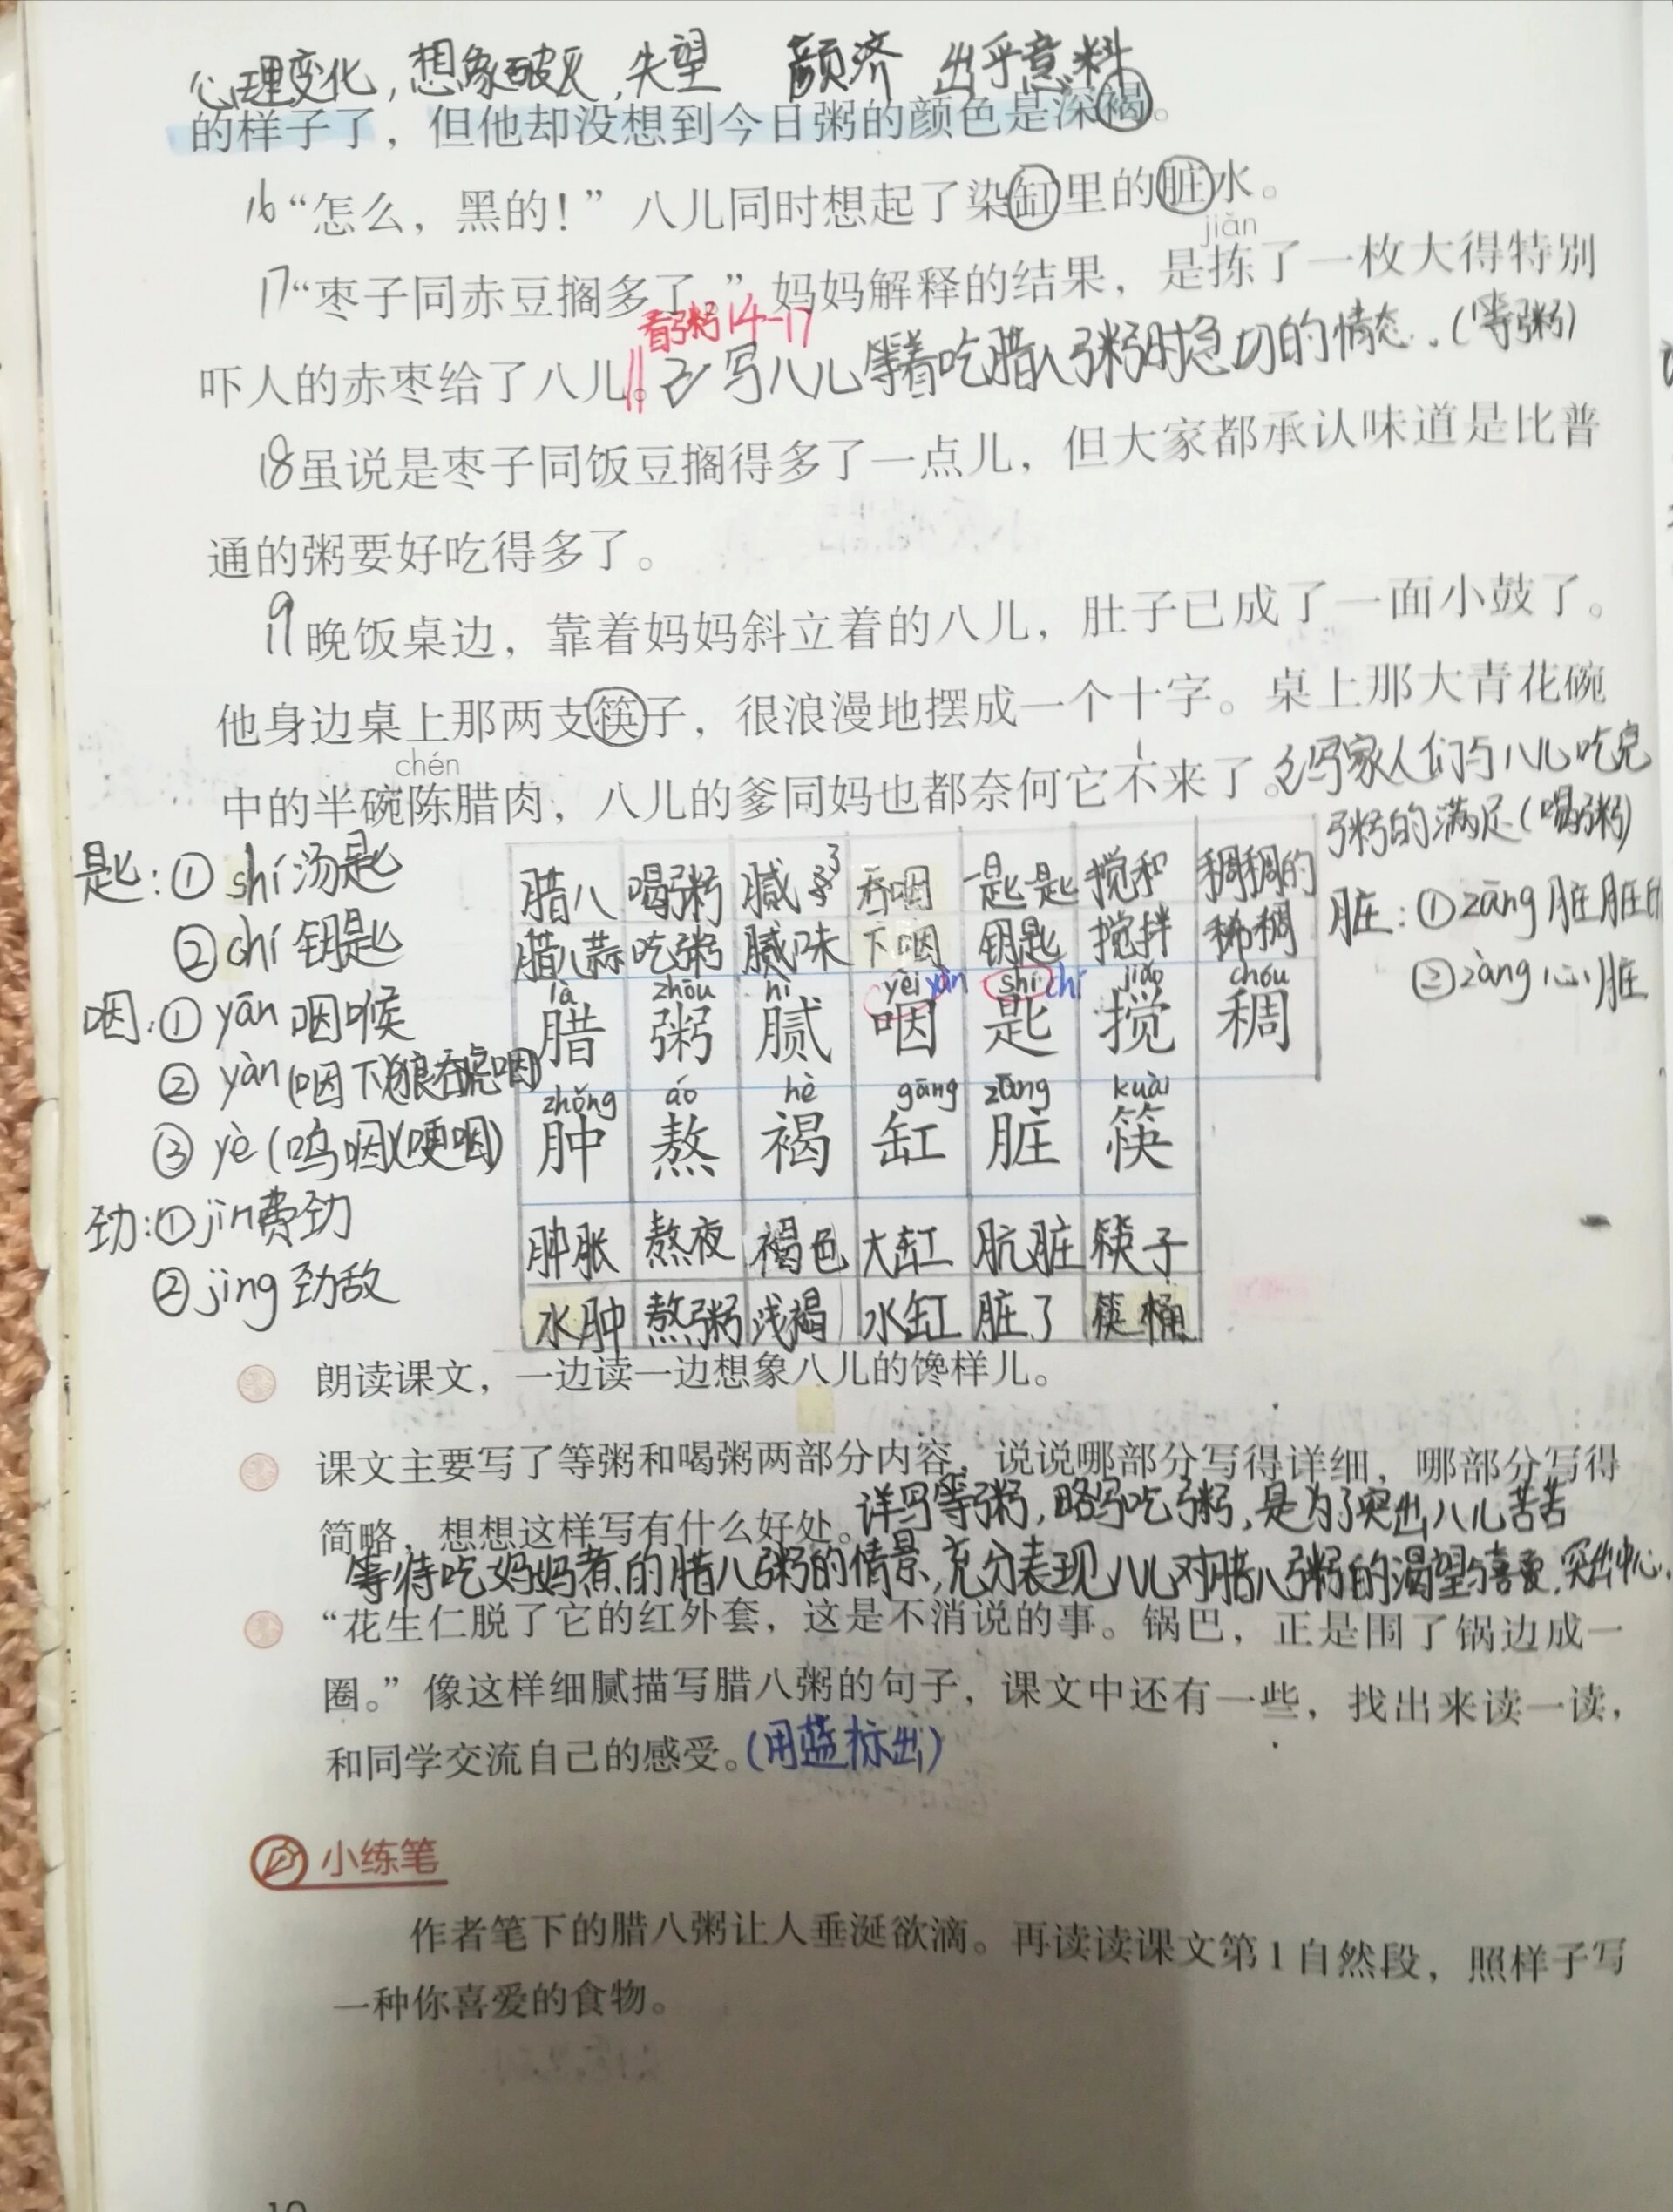 心理变化,想象破灭,失望 出乎意料
的样子了，但他却没想到今日粥的颜色是深褐。
16“怎么，黑的！”八儿同时想起了染缸里的脏水。
jiǎn
17“枣子同赤豆搁多了。”妈妈解释的结果，是拣了一枚大得特别
看粥14-17
吓人的赤枣给了八儿。写八儿等着吃腊八粥时急切的情态.(等粥)
18虽说是枣子同饭豆搁得多了一点儿，但大家都承认味道是比普
通的粥要好吃得多了。
19晚饭桌边，靠着妈妈斜立着的八儿，肚子已成了一面小鼓了。
他身边桌上那两支筷子，很浪漫地摆成一个十字。桌上那大青花碗
chén
中的半碗陈腊肉，八儿的爹同妈也都奈何它不来了。写家人们与八儿吃完
粥的满足(喝粥)
匙:①shí汤匙
②chí钥匙
咽:①yān咽喉
②yàn(咽下)(狼吞虎咽)
③yè(呜咽)(哽咽)
劲:①jìn费劲
②jìng劲敌
脏:①zāng脏脏的
②zàng心脏
腊八 喝粥 腻了 吞咽 一匙匙 搅和 稠稠的
腊八蒜 吃粥 腻味 下咽 钥匙 搅拌 稀稠
là zhōu nì yèi yàn shi chí jiǎo chóu
腊 粥 腻 咽 匙 搅 稠
zhǒng áo hè gāng zāng kuài
肿 熬 褐 缸 脏 筷
肿胀 熬夜 褐色 大缸 肮脏 筷子
水肿 熬粥 浅褐 水缸 脏了 筷桶
朗读课文，一边读一边想象八儿的馋样儿。
课文主要写了等粥和喝粥两部分内容，说说哪部分写得详细，哪部分写得
简略，想想这样写有什么好处。详写等粥,略写吃粥,是为了突出八儿苦苦
等待吃妈妈煮的腊八粥的情景,充分表现八儿对腊八粥的渴望与喜爱,突出中心.
“花生仁脱了它的红外套，这是不消说的事。锅巴，正是围了锅边成一
圈。”像这样细腻描写腊八粥的句子，课文中还有一些，找出来读一读，
和同学交流自己的感受。(用蓝标出)
小练笔
作者笔下的腊八粥让人垂涎欲滴。再读读课文第1自然段，照样子写
一种你喜爱的食物。